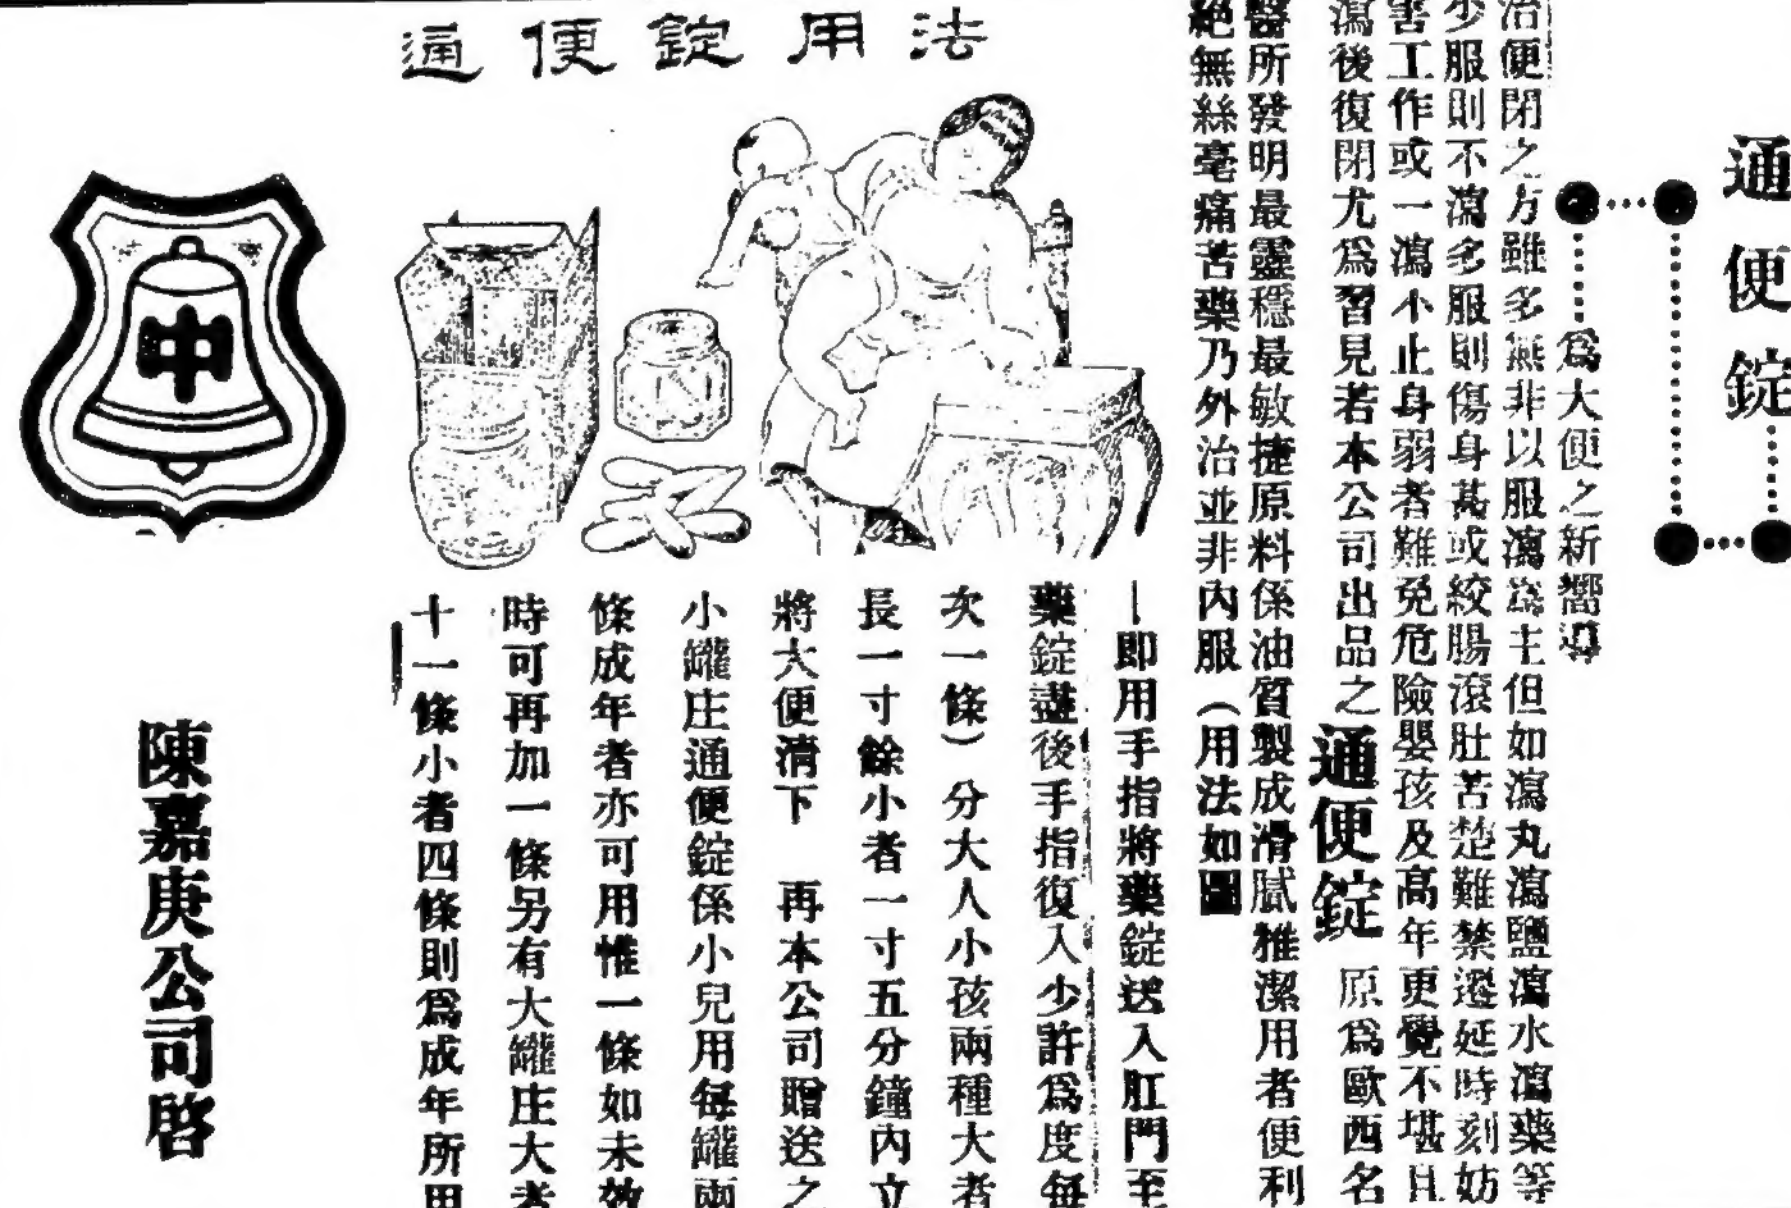 通便錠
爲大便之新嚮導
治便閉之方雖多無非以服瀉爲主但如瀉丸瀉鹽瀉水瀉藥等
少服則不瀉多服則傷身甚或絞腸滾肚苦楚難禁遷延時刻妨
害工作或一瀉不止身弱者難免危險嬰孩及高年更覺不堪且
瀉後復閉尤爲習見若本公司出品之通便錠原爲歐西名
醫所發明最靈穩最敏捷原料係油質製成滑膩雅潔用者便利
絕無絲毫痛苦藥乃外治並非內服（用法如圖
通便錠用法
即用手指將藥錠送入肛門至
藥錠盡後手指復入少許爲度每
次一條）分大人小孩兩種大者
長一寸餘小者一寸五分鐘內立
將大便清下 再本公司贈送之
小罐庄通便錠係小兒用每罐兩
條成年者亦可用惟一條如未效
時可再加一條另有大罐庄大者
十一條小者四條則爲成年所用
中
陳嘉庚公司啓